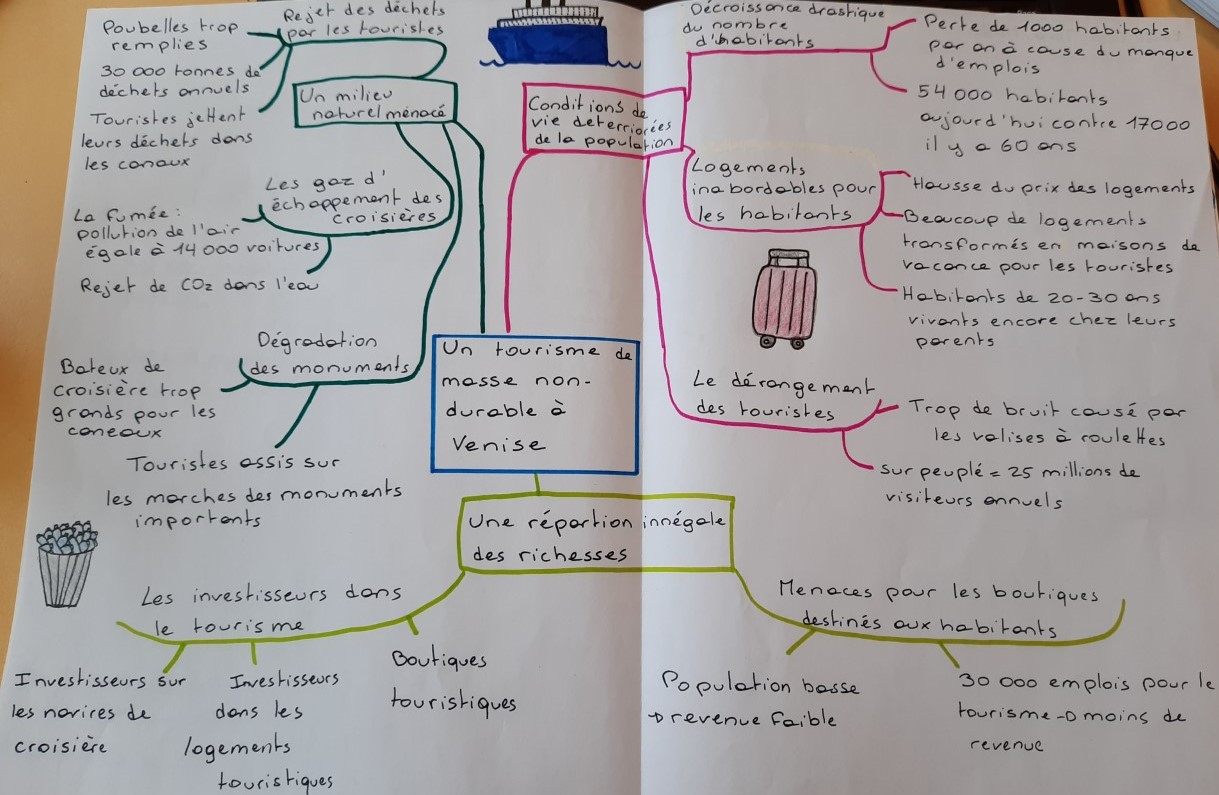 Poubelles trop
remplies
30 000 tonnes de
déchets annuels
Touristes jettent
leurs déchets dans
les canaux
Rejet des déchets
par les touristes
Un milieu
naturel menacé
Les gaz d'
échappement des
croisières
La fumée :
pollution de l'air
égale à 14 000 voitures
Rejet de CO2 dans l'eau
Dégradation
des monuments
Bateux de
croisière trop
grands pour les
caneaux
Touristes assis sur
les marches des monuments
importants
Conditions de
vie deterriorées
de la population
Décroissance drastique
du nombre
d'habitants
Perte de 1000 habitants
par an à cause du manque
d'emplois
54 000 habitants
aujourd'hui contre 17000
il y a 60 ans
Logements
inabordables pour
les habitants
Hausse du prix des logements
Beaucoup de logements
transformés en maisons de
vacance pour les touristes
Habitants de 20-30 ans
vivants encore chez leurs
parents
Le dérangement
des touristes
Trop de bruit causé par
les valises à roulettes
Sur peuplé = 25 millions de
visiteurs annuels
Un tourisme de
masse non-
durable à
Venise
Une répartion innégale
des richesses
Les investisseurs dans
le tourisme
Investisseurs sur
les navires de
croisière
Investisseurs
dans les
logements
touristiques
Boutiques
touristiques
Menaces pour les boutiques
destinés aux habitants
Population basse
→ revenue faible
30 000 emplois pour le
tourisme → moins de
revenue